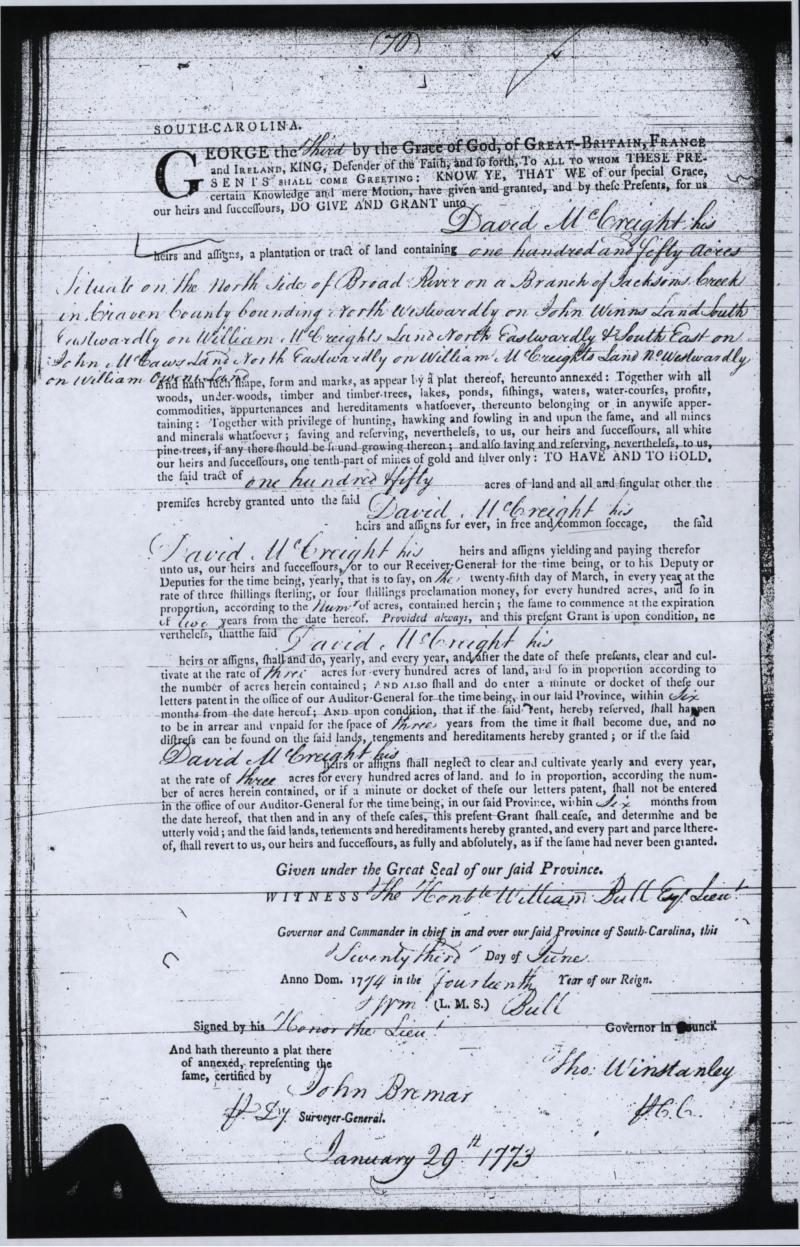 (70)
SOUTH-CAROLINA.
GEORGE the Third by the Grace of God, of GREAT-BRITAIN, FRANCE
and IRELAND, KING, Defender of the Faith, and so forth, TO ALL TO WHOM THESE PRE-
SENTS SHALL COME GREETING: KNOW YE, THAT WE of our special Grace,
certain Knowledge and mere Motion, have given and granted, and by these Presents, for us
our heirs and successours, DO GIVE AND GRANT unto
David McCreight his
heirs and assigns, a plantation or tract of land containing one hundred and fifty acres
Situate on the North Side of Broad River on a Branch of Jacksons Creek
in Craven County bounding North Westwardly on John Winns Land South
Eastwardly on William McCreights Land North Eastwardly & South East on
John McCaws Land North Eastwardly on William McCreights Land No Westwardly
on William Land
And hath such shape, form and marks, as appear by a plat thereof, hereunto annexed: Together with all
woods, under-woods, timber and timber-trees, lakes, ponds, fishings, waters, water-courses, profits,
commodities, appurtenances and hereditaments whatsoever, thereunto belonging or in anywise apper-
taining: Together with privilege of hunting, hawking and fowling in and upon the same, and all mines
and minerals whatsoever; saving and reserving, nevertheless, to us, our heirs and successours, all white
pine-trees, if any there should be found growing thereon; and also saving and reserving, nevertheless, to us,
our heirs and successours, one tenth-part of mines of gold and silver only: TO HAVE AND TO HOLD,
the said tract of one hundred & fifty acres of land and all and singular other the
premises hereby granted unto the said David McCreight his
heirs and assigns for ever, in free and common soccage, the said
David McCreight his heirs and assigns yielding and paying therefor
unto us, our heirs and successours, or to our Receiver-General for the time being, or to his Deputy or
Deputies for the time being, yearly, that is to say, on the twenty-fifth day of March, in every year at the
rate of three shillings sterling, or four shillings proclamation money, for every hundred acres, and so in
proportion, according to the Numr of acres, contained herein; the same to commence at the expiration
of two years from the date hereof. Provided always, and this present Grant is upon condition, ne
vertheless, thatthe said David McCreight his
heirs or assigns, shall and do, yearly, and every year, and after the date of these presents, clear and cul-
tivate at the rate of three acres for every hundred acres of land, and so in proportion according to
the number of acres herein contained; AND ALSO shall and do enter a minute or docket of these our
letters patent in the office of our Auditor-General for the time being, in our said Province, within Six
months from the date hereof; AND upon condition, that if the said rent, hereby reserved, shall happen
to be in arrear and unpaid for the space of three years from the time it shall become due, and no
distress can be found on the said lands, tenements and hereditaments hereby granted; or if the said
David McCreight his
heirs or assigns shall neglect to clear and cultivate yearly and every year,
at the rate of three acres for every hundred acres of land. and so in proportion, according the num-
ber of acres herein contained, or if a minute or docket of these our letters patent, shall not be entered
in the office of our Auditor-General for the time being, in our said Province, within Six months from
the date hereof, that then and in any of these cases, this present Grant shall cease, and determine and be
utterly void; and the said lands, tenements and hereditaments hereby granted, and every part and parcel there-
of, shall revert to us, our heirs and successours, as fully and absolutely, as if the same had never been granted.
Given under the Great Seal of our said Province.
WITNESS The Honble William Bull Esqr. Lieut
Governor and Commander in chief in and over our said Province of South-Carolina, this
Twenty third Day of June
Anno Dom. 1774 in the fourteenth Year of our Reign.
Wm (L. M. S.) Bull
Signed by his Honor the Lieut Governor in Council
And hath thereunto a plat there
of annexed, representing the
same, certified by
Tho: Winstanley
John Bremar
Dy Surveyer-General.
C.C.
January 29th 1773